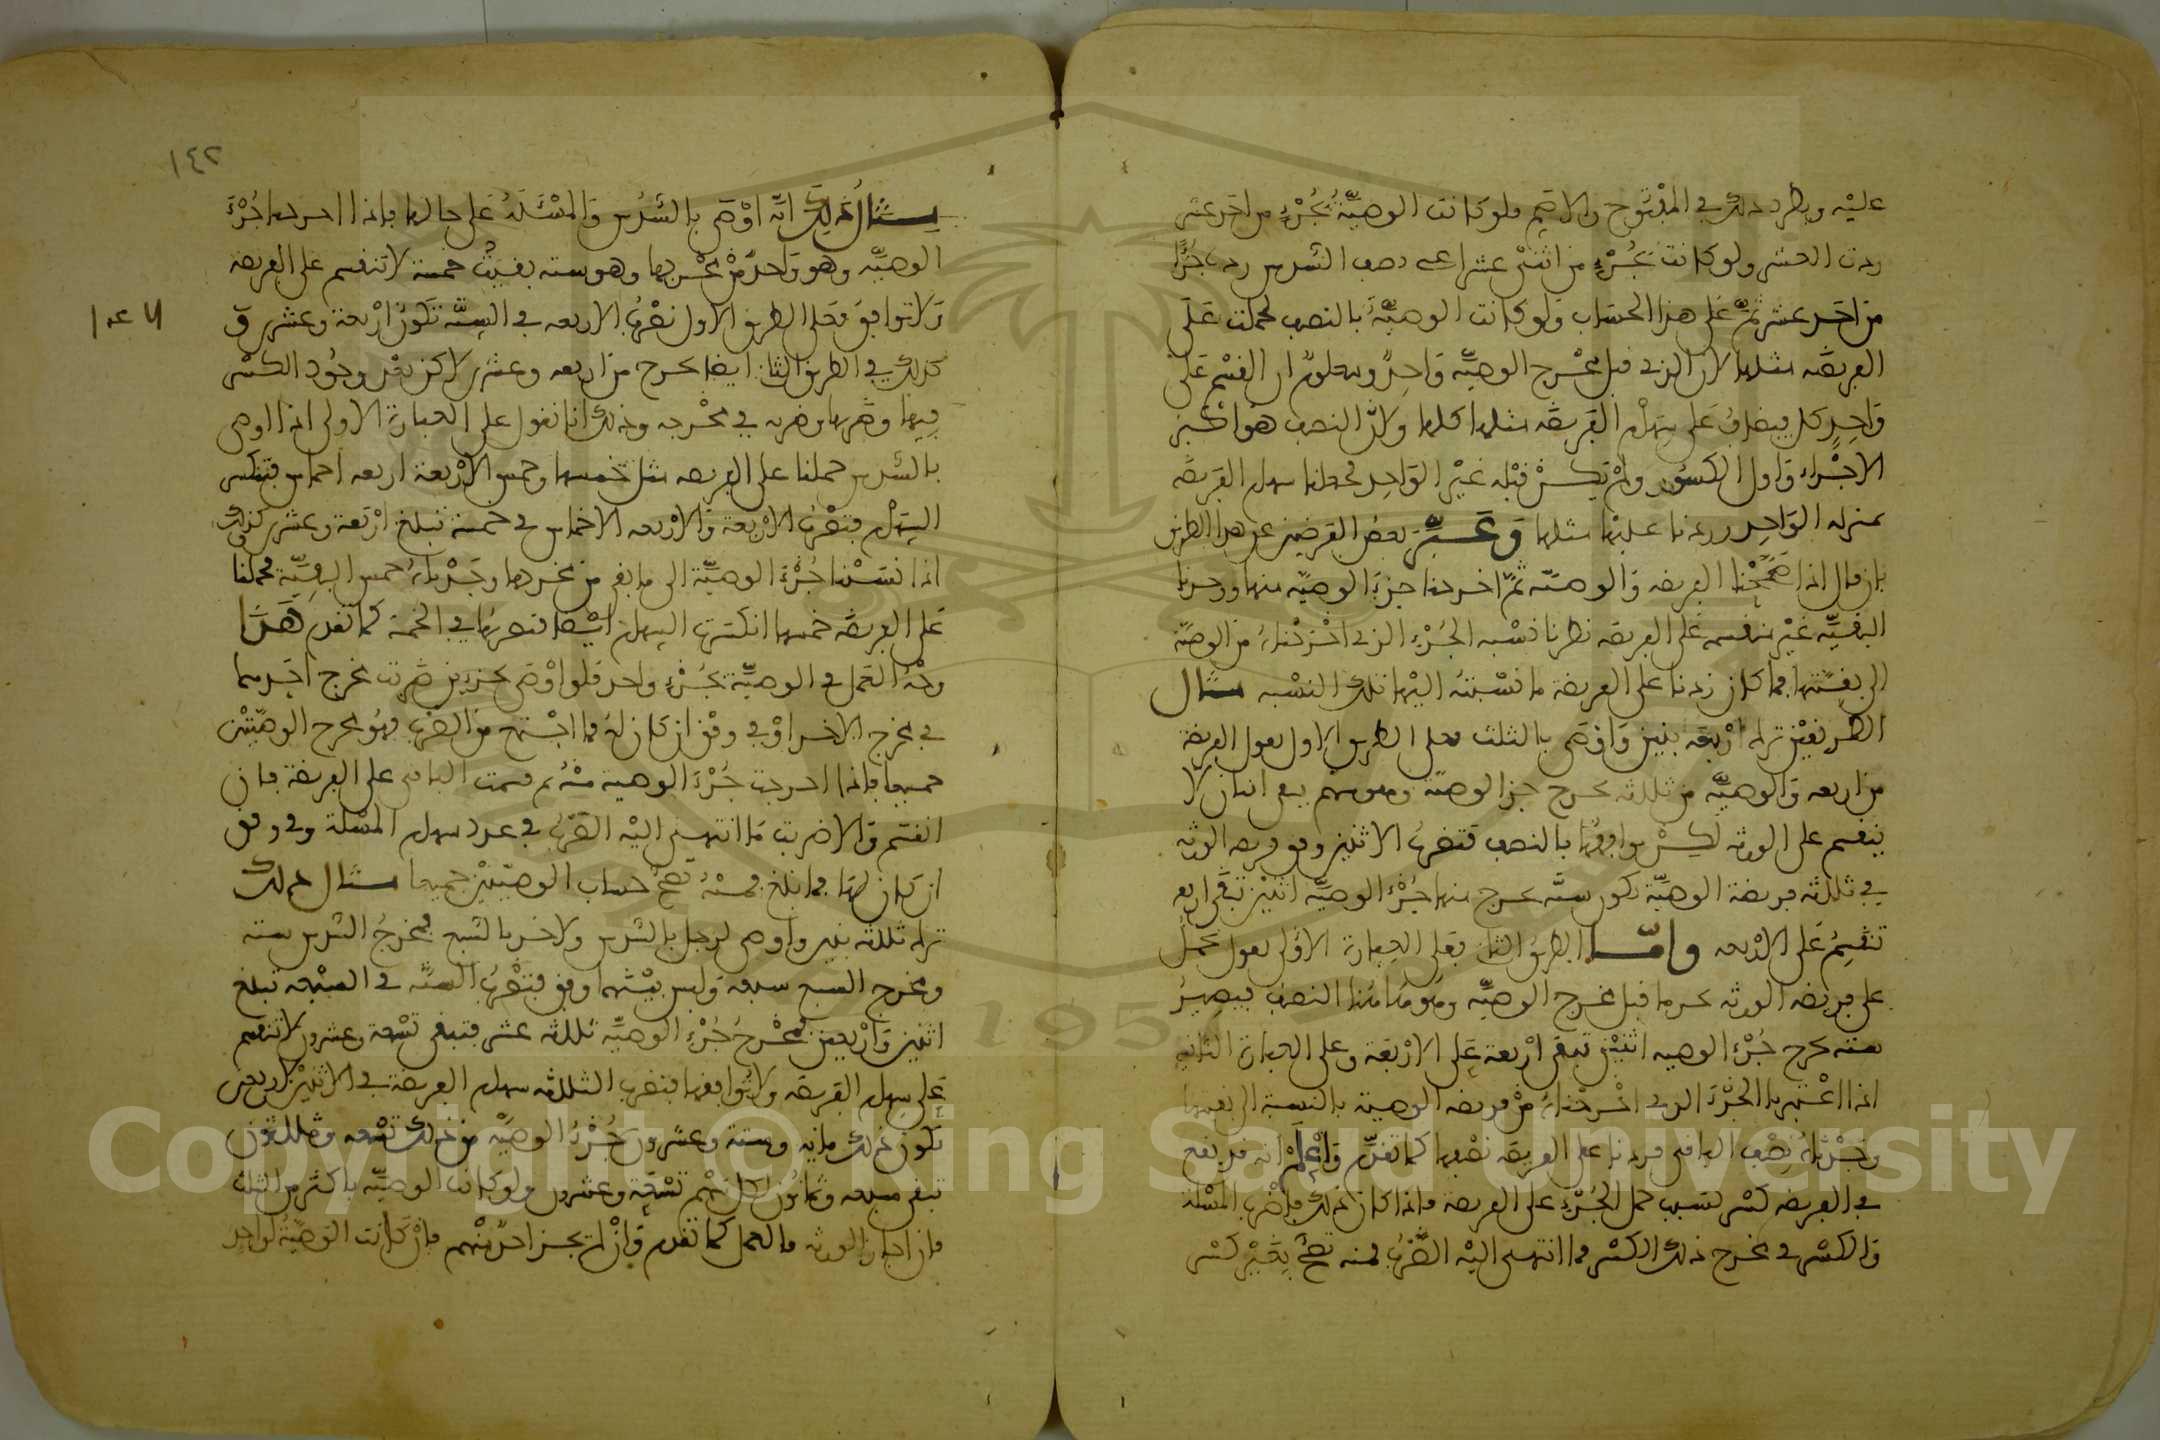 عليه ويطرد ذلك في المفتوح والاصم فلو كانت الوصية بجزء من احد عشر
زدت العشر ولو كانت بجزء من اثني عشر اعني نصف السدس زدت جزءا
من احد عشر ثم على هذا الحساب ولو كانت الوصية بالنصف لحملت على
الفريضة مثلها لان الذي قبل مخرج الوصية واحد ومعلوم ان القسم على
واحد كل فيضاف على سهام الفريضة مثلها كلها ولان النصف هو اكبر
الاجزاء واول الكسور ولم يكن قبله غير الواحد فجعلنا سهام الفريضة
بمنزلة الواحد وزدنا عليها مثلها وعبر بعض الفرضيين عن هذا الطريق
بان قال اذا صححنا الفريضة والوصية ثم اخرجنا جزء الوصية منها ووجدنا
البقية غير منقسمة على الفريضة نظرنا نسبة الجزء الذي اخرجناه من الوصية
الى بقيتها فما كان زدنا على الفريضة ما نسبته اليها تلك النسبة مثال
الطريقين ترك اربعة بنين واوصى بالثلث فعلى الطريق الاول نقول الفريضة
من اربعة والوصية من ثلاثة نخرج جزء الوصية وهو سهم يبقى اثنان لا
ينقسم على الورثة لكن يوافقها بالنصف فتضرب الاثنين وفق فريضة الورثة
في ثلاثة فريضة الوصية تكون ستة نخرج منها جزء الوصية اثنين تبقى اربعة
تنقسم على الاربعة واما الطريق الثاني فعلى العبارة الاولى نقول نحمل
على فريضة الورثة بجزء ما قبل مخرج الوصية وهو هاهنا النصف فيصير
ستة نخرج جزء الوصية اثنين تبقى اربعة على الاربعة وعلى العبارة الثانية
اذا اعتبرنا الجزء الذي اخرجناه من فريضة الوصية بالنسبة الى بقيتها
وجدناه نصف الباقي فزدنا على الفريضة نصفها كما تقدم واعلم انه قد يقع
في الفريضة كسر بسبب حمل الجزء على الفريضة فاذا كان ذلك فاضرب المسئلة
والكسر في مخرج ذلك الكسر فما انتهى اليه الضرب فمنه تصح بغير كسر
١٤٢
١٤٧
مثال ذلك انه اوصى بالسدس والمسئلة على حالها فاذا اخرجنا جزء
الوصية وهو واحد من مخرجها وهو ستة بقيت خمسة لا تنقسم على الفريضة
ولا توافق فعلى الطريق الاول نضرب الاربعة في الستة تكون اربعة وعشرين و
كذلك في الطريق الثاني ايضا تخرج من اربعة وعشرين لاكن بعد وجود الكسر
فيها وضربها وضربه في مخرجه وذلك انا نقول على العبارة الاولى اذا اوصى
بالسدس حملنا على الفريضة مثل خمسها وخمس الاربعة اربعة اخماس فتنكسر
السهام فتضرب الاربعة والاربعة الاخماس في خمسة تبلغ اربعة وعشرين كذلك
اذا نسبنا جزء الوصية الى ما بقي من مخرجها وجدناه خمس البقية فحملنا
على الفريضة خمسها انكسرت السهام ايضا فتضربها في الخمسة كما تقدم هذا
وجه العمل في الوصية بجزء واحد فلو اوصى بجزءين ضربت مخرج احدهما
في مخرج الاخر او في وفق ان كان له فما اجتمع من الضرب فهو مخرج الوصيتين
جميعا فاذا اخرجت جزء الوصية منه ثم قسمت الباقي على الفريضة فان
انقسم والا ضربت ما انتهى اليه الضرب في عدد سهام المسئلة او في وفق
ان كان لها فما بلغ فمنه تصح حساب الوصيتين جميعا مثال ذلك
ترك ثلاثة بنين واوصى لرجل بالسدس ولاخر بالسبع فمخرج السدس ستة
ومخرج السبع سبعة وليس بينهما وفق فتضرب الستة في السبعة تبلغ
اثنين واربعين فتخرج جزء الوصية ثلاثة عشر فتبقى تسعة وعشرون لا تنقسم
على سهام الفريضة ولا توافقها فتضرب الثلاثة سهام الفريضة في الاثنين والاربعين
تكون ذلك ماية وستة وعشرون جزء الوصية من ذلك تسعة وثلاثون
تبقى سبعة وثمانون لكل سهم تسعة وعشرون ولو كانت الوصية باكثر من الثلث
فان اجاز الورثة فالعمل كما تقدم وان لم يجز احد منهم فان كانت الوصية لواحد
Copyright © King Saud University
1957